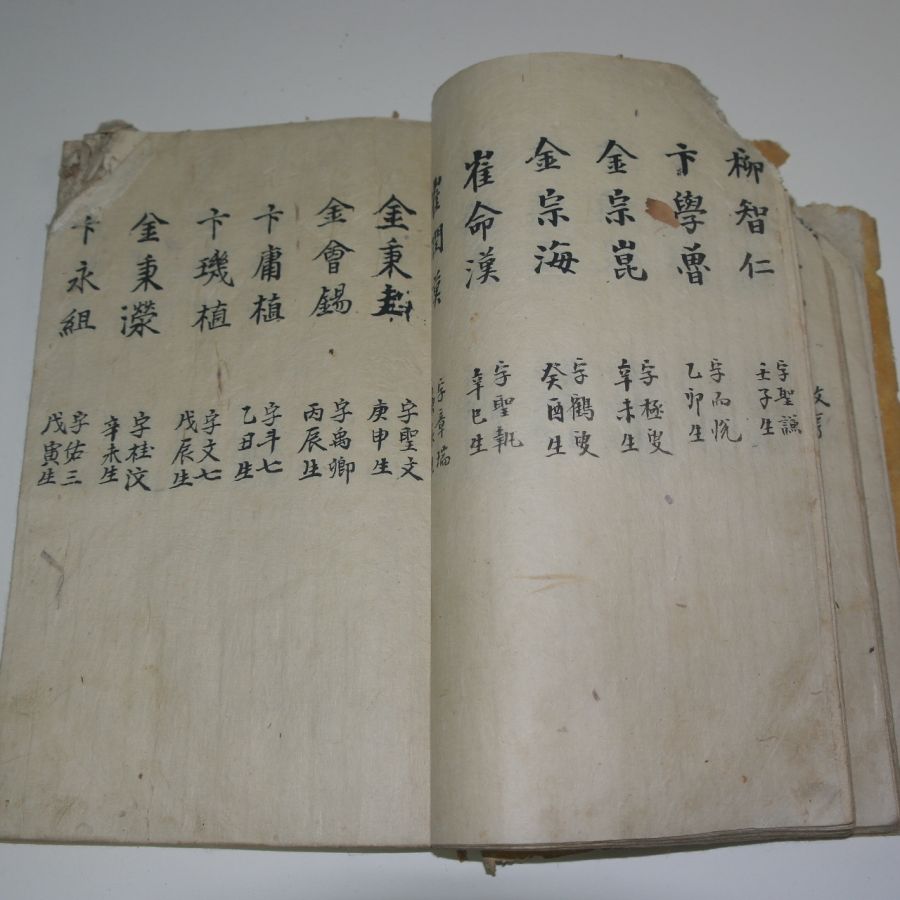 柳智仁
字聖謙
壬子生
卞學魯
字而悅
乙卯生
金宗崑
字極叟
辛未生
金宗海
字鶴叟
癸酉生
崔命漢
字聖執
辛巳生
崔潤漢
字章瑞
金秉
字聖文
庚申生
金會錫
字禹卿
丙辰生
卞庸植
字斗七
乙丑生
卞璣植
字文七
戊辰生
金秉濚
字桂汶
辛未生
卞永組
字佑三
戊寅生